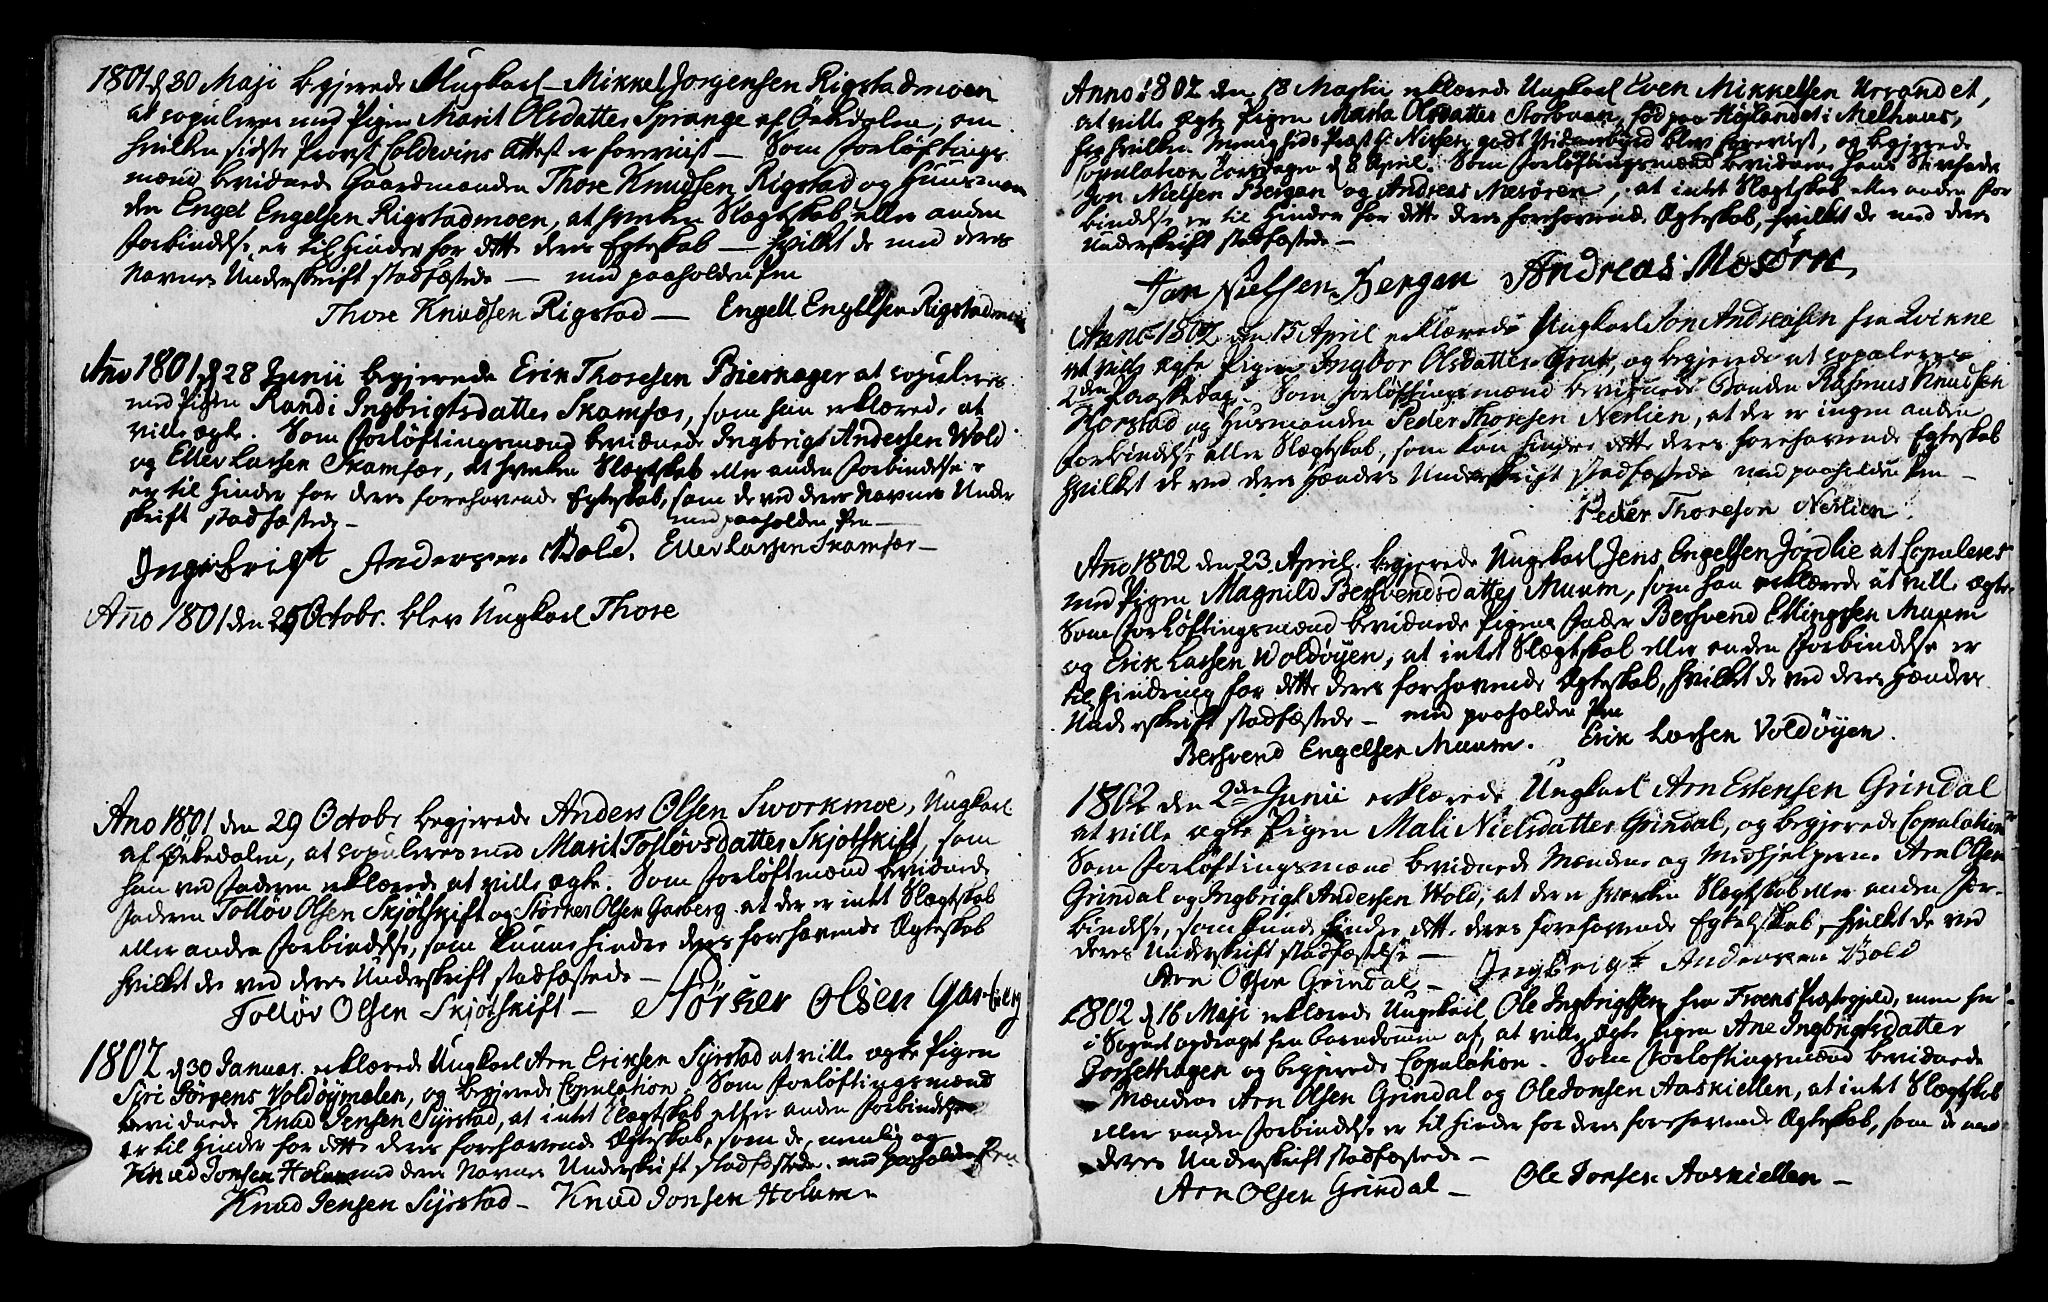 1801 d 30 Maji begjerede Ungkarl Mikkel Jørgensen Rigstadmoen
at copuleres med Pigen Marit Olsdatter Sprange af Ørkedalen, om
hvilken sidste Provst Coldevins Attest er foreviist — Som Forløftnings
mænd bevidnede Gaardmanden Thore Knudsen Rigstad og Huusman
den Engel Engelsen Rigstadmoen, at hverken Slægtskab eller anden
Forbindelse er til Hinder for dette deres Egteskab — hvilket de med deres
Navnes Underskrift stadfæstede — med paaholden Pen
Thore Knudsen Rigstad — Engell Engellsen Rigstadmoen
Año 1801 d 28 Junii begjerede Erik Thoresen Bierkager at copuleres
med Pigen Randi Ingbrigtsdatter Skamfær, som han erklærede at
ville ægte. Som Forløftningsmænd bevidnede Ingbrigt Andersen Wold
og Eller Larsen Skamfær, at hverken Slægtskab eller anden Forbindelse
er til Hinder for deres forehavende Egteskab, som de ved deres Navnes Under
skrift stadfæstede —
med paaholden Pen —
Ingebrigt Andersen Wold. Eller Larsen Skamfær —
Año 1801 den 29 Octobr. blev Ungkarl Thore
Ano 1801 den 29 Octobr begjerede Anders Olsen Sworkmoe, Ungkarl
af Ørkedalen, at copuleres med Marit Tolløvsdatter Skjøtskift, som
han ved Faderen erklærede at ville ægte. Som Forløftmænd bevidnede
Faderen Tolløv Olsen Skjøtskift og Størker Olsen Garberg at der er intet Slægtskab
eller anden Forbindelse, som kunne hindre deres forehavende Ægteskab
hvilket de ved deres Underskrift stadfæstede —
Tolløv Olsen Skjøtskift — Størker Olsen Garberg
1802 d 30 Januar. erklærede Ungkarl Arn Eriksen Syrstad at ville ægte Pigen
Siri Jørgens Voldøymælen, og begjerede Copulation. Som Forløftningsmænd
bevidnede Knud Jensen Syrstad, at intet Slægtskab eller anden Forbindelse
er til Hinder for dette deres forehavende Ægteskab, som de, nemlig og
Knud Jonsen Holum med deres Navnes Underskrift stadfæstede. med paaholden Pen
Knud Jensen Syrstad — Knud Jonsen Holum.
Anno 1802 den 18 Martii erklærede Ungkarl Even Mikkelsen Urvandet,
at ville ægte Pigen Marta Olsdatter Storboan, fød paa Høylandet i Melhuus,
fra hvilken Menigheds Præst H. Nissen godt Vidnesbyrd blev forevist, og begjerede
Copulation d 8 April. Som Forløftningsmænd bevidnede hans
Jon Nielsen Bergan og Andreas Mosøren, at intet Slægtskab eller anden For
bindelse er til Hinder for dette deres forehavende Ægteskab, hvilket de med deres
Underskrift stadfæstede —
Jon Nielsen Bergan Andreas Mosørn
Anno 1802 den 15 April erklærede Ungkarl Jon Andreasen fra Qvinne
at ville ægte Pigen Ingbor Olsdatter Grut, og begjerede at copuleres
2den Paaskedag. Som Forløftningsmænd bevidnede Rasmus Knudsen
Korstad og Husmanden Peder Thoresen Nerlien, at der er ingen anden
Forbindelse eller Slægtskab, som kan hindre dette deres forehavende Egteskab
hvilket de ved deres Hænders Underskrift stadfæstede med paaholden Pen —
Peder Thoresen Nerlien.
Año 1802 den 23 April. begjerede Ungkarl Jens Engelsen Jordlie at Copuleres
med Pigen Magnild Bersvendsdatter Muum, som han erklærede at ville ægte.
Som Forløftningsmænd bevidnede Pigens Fader Bersvend Ellingsen Muum
og Erik Larsen Woldøyen, at intet Slægtskab eller anden Forbindelse er
til Hindring for dette deres forehavende Ægteskab, hvilket de ved deres Hænders
Underskrift stadfæstede — med paaholden Pen
Bersvend Engelsen Muum. Erik Larsen Voldøyen.
1802 den 2den Junii erklærede Ungkarl Arn Estensen Grindal
at ville ægte Pigen Mali Nielsdatter Grindal, og begjerede Copulation
Som Forløftningsmænd bevidnede Mændene og Medhjelperne Arn Olsen
Grindal og Ingbrigt Andersen Wold, at der er hverken Slægtskab eller anden For-
bindelse, som kunde hindre dette deres forehavende Egteskab, hvilket de ved
deres Underskrift stadfæstelse —
Arn Olsen Grindal — Ingbrigt Andersen Wold
1802 d 16 Maji erklærede Ungkarl Ole Ingbrigtsen fra Præstegjeld, men her
i Sognet opdraget fra barndommen af, at ville ægte Pigen Ane Ingbrigtsdatter
Gorsethagen og begjerede Copulation. Som Forløftningsmænd bevidnede
Mændene Arn Olsen Grindal og Ole Jonsen Aaskiellen, at intet Slægtskab
eller anden Forbindelse er til Hinder for deres forehavende Ægteskab, som de med
deres Underskrift stadfæstede —
Arn Olsen Grindal — Ole Jonsen Aaskiellen —